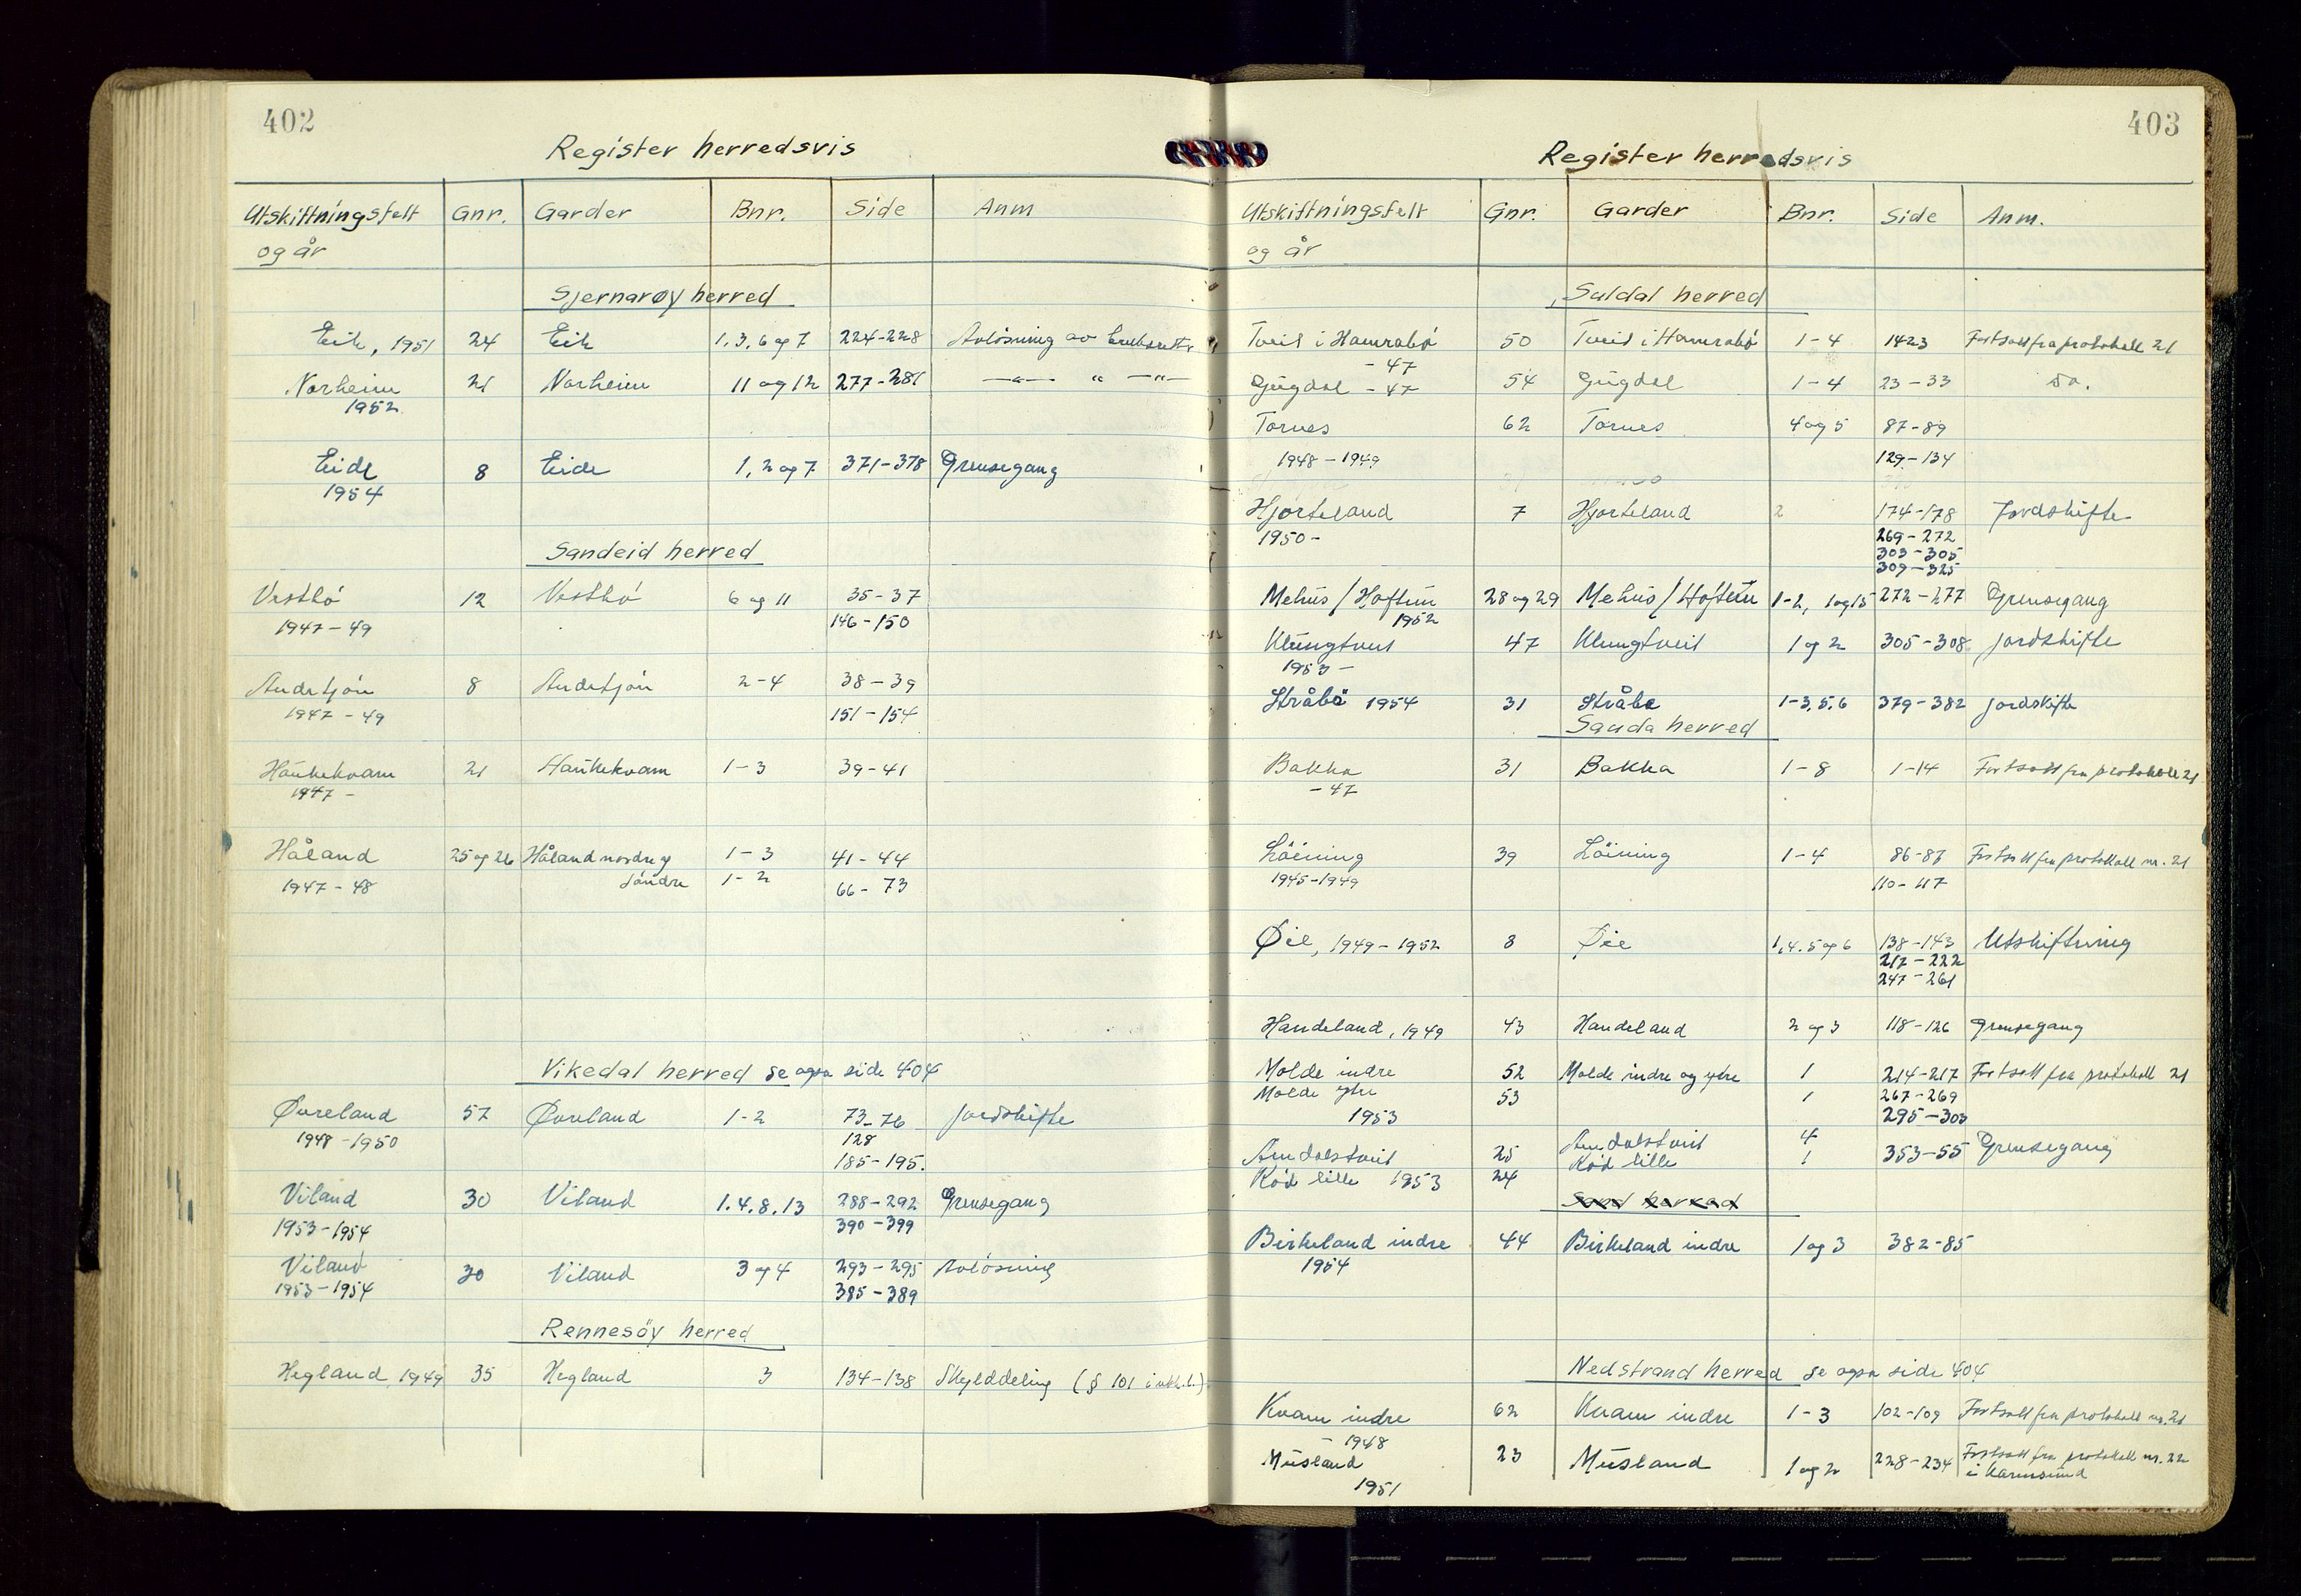 402
Register herredsvis
Utskiftningsfelt Gnr. Garder Bnr. Side Anm
og år
Sjernarøy herred
Eik, 1951 24 Eik 1, 3, 6 og 7 224-228 Avlösning av bruksrett
Norheim 21 Norheim 11 og 12 277-281 —"— " —"—
1952
Eide 8 Eide 1, 2 og 7 371-378 Grensegang
1954
Sandeid herred
Vestbö 12 Vestbö 6 og 11 35-37
1947-49 146-150
Andstjön 8 Andstjön 2-4 38-39
1947-49 151-154
Haukekvam 21 Haukekvam 1-3 39-41
1947-
Håland 25 og 26 Håland nordre og 1-3 41-44
1947-48 söndre 1-2 66-73
Vikedal herred se også side 404
Øvreland 57 Øvreland 1-2 73-76 Jordskifte
1948-1950 128
185-195.
Viland 30 Viland 1.4.8.13 288-292 Grensegang
1953-1954 390-399
Viland 30 Viland 3 og 4 293-295 Avlösning
1953-1954 385-389
Rennesöy herred
Hegland, 1949 35 Hegland 3 134-138 Skylddeling (§ 101 i
403
Register herredsvis
Utskiftningsfelt Gnr. Garder Bnr. Side Anm.
og år
Suldal herred
Tveit i Hamrabö 50 Tveit i Hamrabö 1-4 1423 Fortsatt fra protokoll 21
-47
Gûgdal -47 54 Gûgdal 1-4 23-33 do.
Tornes 62 Tornes 4 og 5 87-89
1948-1949 129-134
Hjorteland 7 Hjorteland 2 174-178 Jordskifte
1950- 269-272
303-305
309-325
Mehûs/Hoftûn 28 og 29 Mehûs/Hoftûn 1-2, 1 og 15 272-277 Grensegang
1952
Klûngtveit 47 Klungtveit 1 og 2 305-308 Jordskifte
1953-
Stråbö 1954 31 Stråbö 1-3,5,6 379-382 Jordskifte
Sauda herred
Bakka 31 Bakka 1-8 1-14 Fortsatt fra protokoll 21
-47
Löining 39 Löining 1-4 86-87 Fortsatt fra protokoll nr. 21
1945-1949 110-117
Øie, 1949-1952 8 Øie 1,4.5 og 6 138-143 Utskiftning
217-222
247-261
Handeland, 1949 43 Handeland 2 og 3 118-126 Grensegang
Molde indre 52 Molde indre og ytre 1 214-217 Fortsatt fra protokoll 21
Molde ytre 53 1 267-269
1953 295-303
Amdalstveit 25 Amdalstveit 4 353-55 Grensegang
Röd lille 1953 24 Röd lille 1
Sand herred
Birkeland indre 44 Birkeland indre 1 og 3 382-85
1954
Nedstrand herred se også side 404
Kvam indre 62 Kvam indre 1-3 102-109 Fortsatt fra protokoll nr. 21
- 1948
Mûsland 23 Mûsland 1 og 2 228-234 Fortsatt fra protokoll nr. 22
1951 i Karmsund